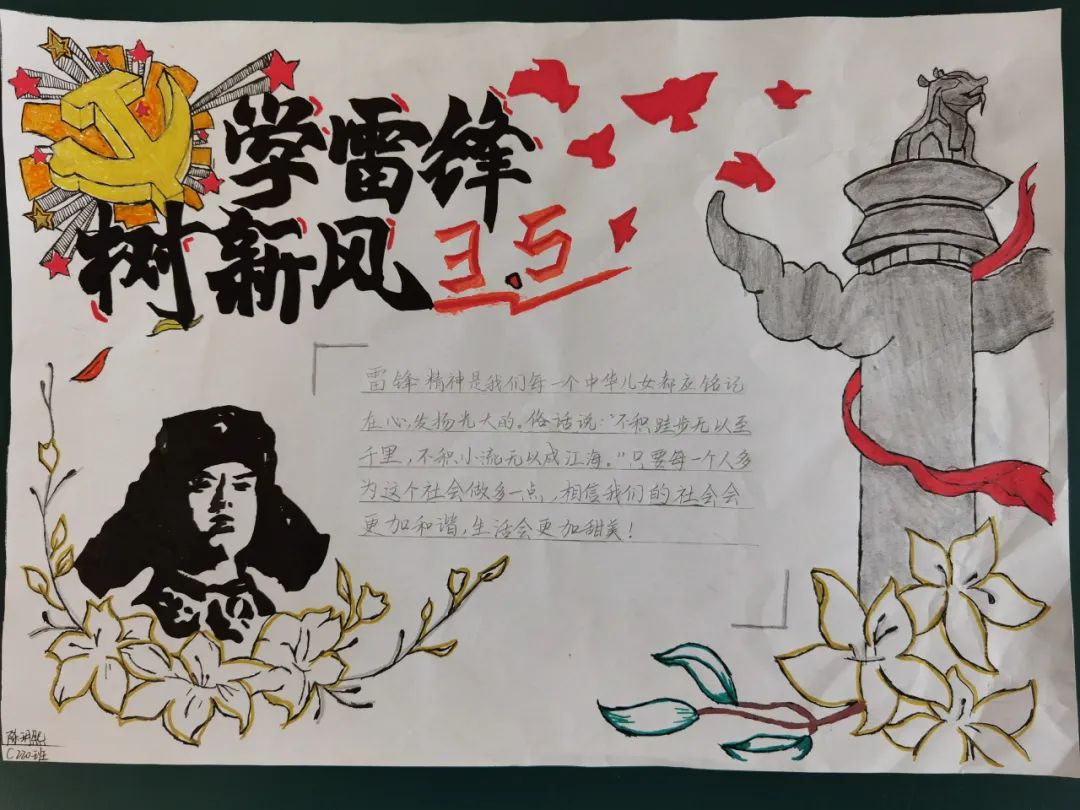 学雷锋
树新风 3.5
雷锋精神是我们每一个中华儿女都应铭记
在心,发扬光大的。俗话说:"不积跬步无以至
千里,不积小流无以成江海。"只要每一个人多
为这个社会做多一点,相信我们的社会会
更加和谐,生活会更加甜美!
C220班